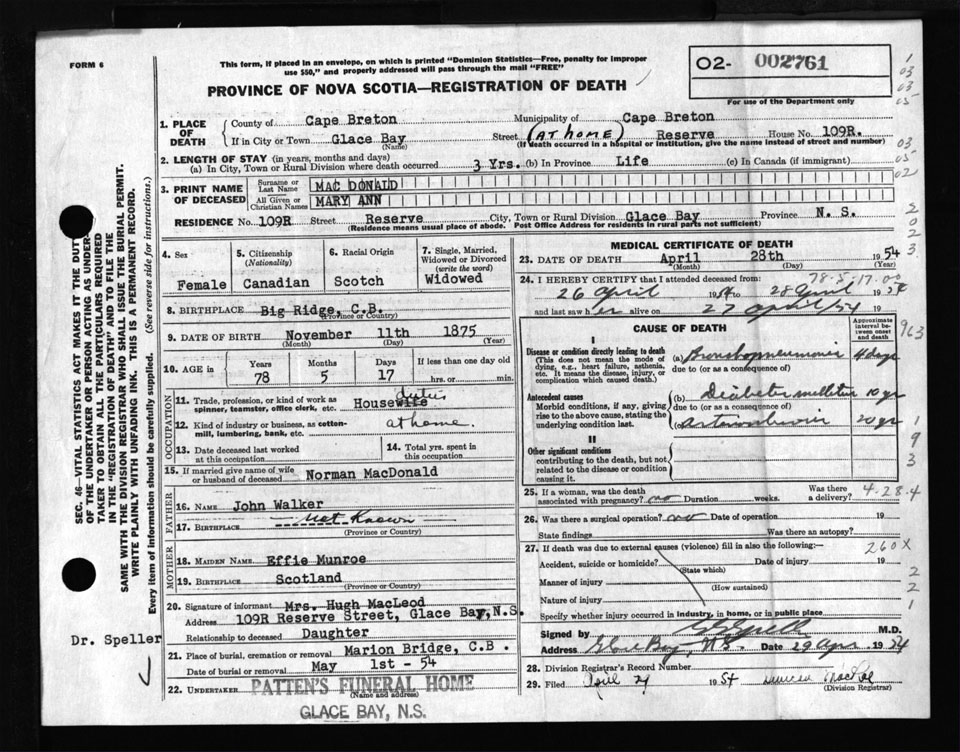 FORM 6
This form, if placed in an envelope, on which is printed "Dominion Statistics—Free, penalty for improper
use $50," and properly addressed will pass through the mail "FREE"
O2- 002761
For use of the Department only
PROVINCE OF NOVA SCOTIA—REGISTRATION OF DEATH
1. PLACE OF DEATH
County of Cape Breton Municipality of Cape Breton
If in City or Town Glace Bay (Name) Street (AT HOME) Reserve House No. 109R.
(If death occurred in a hospital or institution, give the name instead of street and number)
2. LENGTH OF STAY (in years, months and days)
(a) In City, Town or Rural Division where death occurred 3 Yrs. (b) In Province Life (c) In Canada (if immigrant)
3. PRINT NAME OF DECEASED
Surname or Last Name MAC DONALD
All Given or Christian Names MARY ANN
RESIDENCE No. 109R Street Reserve City, Town or Rural Division Glace Bay Province N. S.
(Residence means usual place of abode. Post Office Address for residents in rural parts not sufficient)
4. Sex Female
5. Citizenship (Nationality) Canadian
6. Racial Origin Scotch
7. Single, Married, Widowed or Divorced (write the word) Widowed
8. BIRTHPLACE Big Ridge, C.B.
(Province or Country)
9. DATE OF BIRTH November 11th 1875
(Month) (Day) (Year)
10. AGE in Years 78 Months 5 Days 17 If less than one day old hrs. or min.
OCCUPATION
11. Trade, profession, or kind of work as spinner, teamster, office clerk, etc. Housewife duties
12. Kind of industry or business, as cotton-mill, lumbering, bank, etc. at home.
13. Date deceased last worked at this occupation
14. Total yrs. spent in this occupation
15. If married give name of wife or husband of deceased Norman MacDonald
FATHER
16. NAME John Walker
17. BIRTHPLACE Not Known
(Province or Country)
MOTHER
18. MAIDEN NAME Effie Munroe
19. BIRTHPLACE Scotland
(Province or Country)
20. Signature of informant Mrs. Hugh MacLeod
Address 109R Reserve Street, Glace Bay, N.S.
Relationship to deceased Daughter
21. Place of burial, cremation or removal Marion Bridge, C.B.
Date of burial or removal May 1st - 54
22. UNDERTAKER PATTEN'S FUNERAL HOME
(Name and address)
GLACE BAY, N.S.
MEDICAL CERTIFICATE OF DEATH
23. DATE OF DEATH April 28th 1954
(Month) (Day) (Year)
78-5-17-00
24. I HEREBY CERTIFY that I attended deceased from:
26 April 1954 to 28 April 1954
and last saw her alive on 27 april/54 19
CAUSE OF DEATH
Approximate interval between onset and death
I
Disease or condition directly leading to death
(This does not mean the mode of dying, e.g., heart failure, asthenia, etc. It means the disease, injury, or complication which caused death.)
(a) Bronchopneumonia 4 days
due to (or as a consequence of)
Antecedent causes
Morbid conditions, if any, giving rise to the above cause, stating the underlying condition last.
(b) Diabetes mellitus 10 yr
due to (or as a consequence of)
20 yr
II
Other significant conditions
contributing to the death, but not related to the disease or condition causing it.
25. If a woman, was the death associated with pregnancy? no Duration weeks. Was there a delivery?
4-28-4
26. Was there a surgical operation? no Date of operation 19
State findings Was there an autopsy?
27. If death was due to external causes (violence) fill in also the following:— 260X
Accident, suicide or homicide? Date of injury 19
(State which)
Manner of injury
(How sustained)
Nature of injury
Specify whether injury occurred in industry, in home, or in public place
Signed by M.D.
Address Glace Bay, N.S. Date 29 Apr. 1954
28. Division Registrar's Record Number
29. Filed April 29 1954 Duncan
(Division Registrar)
SEC. 46—VITAL STATISTICS ACT MAKES IT THE DUTY
OF THE UNDERTAKER OR PERSON ACTING AS UNDER-
TAKER TO OBTAIN ALL THE PARTICULARS REQUIRED
IN THE "REGISTRATION OF DEATH" AND TO FILE THE
SAME WITH THE DIVISION REGISTRAR WHO SHALL ISSUE THE BURIAL PERMIT.
WRITE PLAINLY WITH UNFADING INK. THIS IS A PERMANENT RECORD.
Every item of information should be carefully supplied. (See reverse side for instructions.)
Dr. Speller
1
03
03
05
03
05
02
2
0
2
3
963
1
9
3
2
2
1